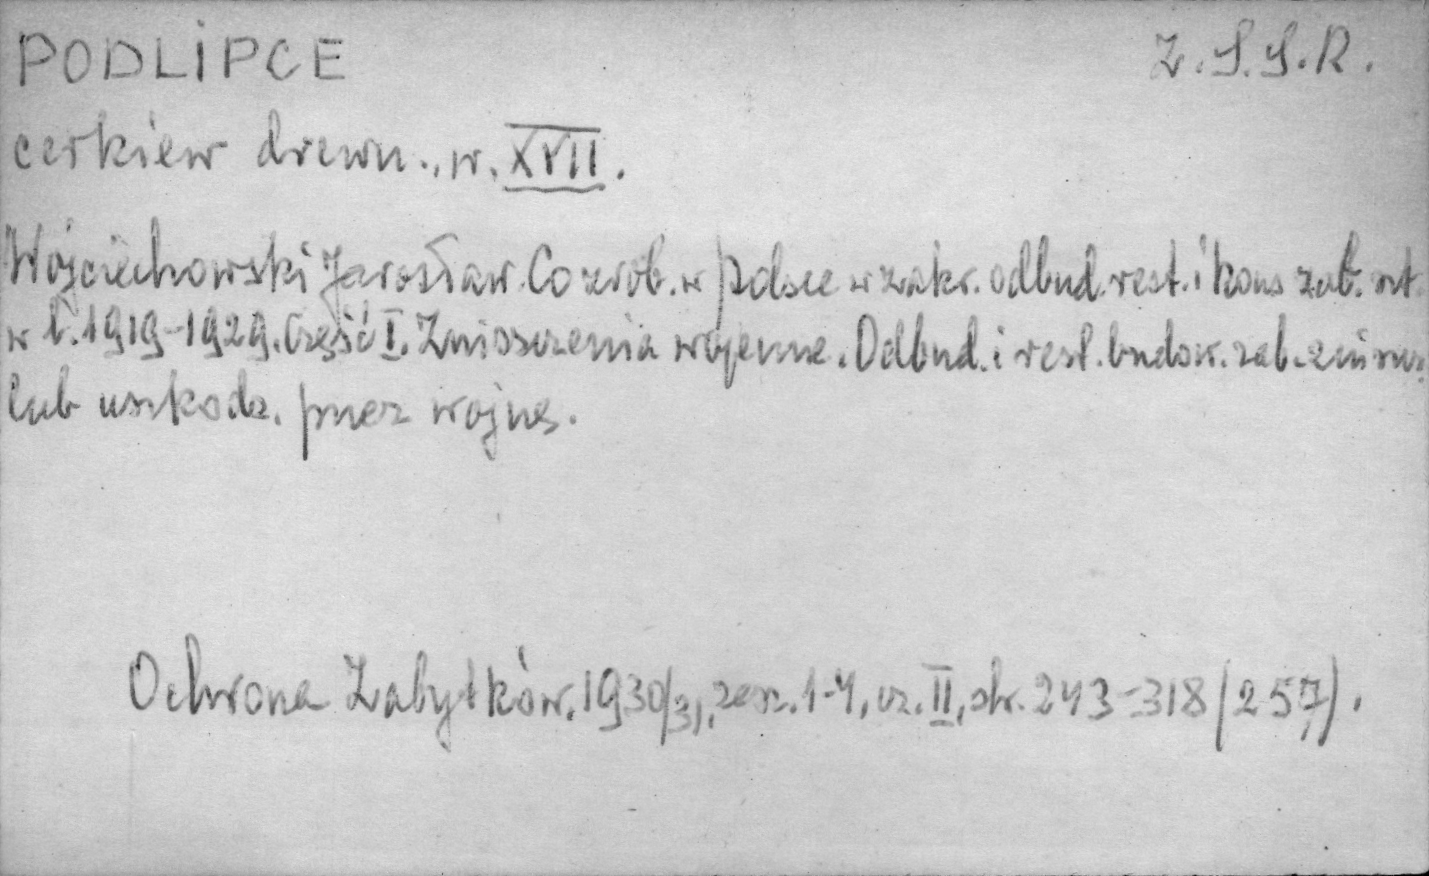 PODLIPCE Z.S.S.R.
cerkiew drewn., w. XVII.
Wojciechowski Jarosław. Co zrob. w Polsce w zakr. odbud. rest. i kons zab. szt.
w l. 1919-1929. Część I. Zniszczenia wojenne. Odbud. i rest. budow. zab. znisz.
lub uszkodz. przez wojnę.
Ochrona Zabytków, 1930/31, zesz. 1-4, cz. II, str. 243-318 /257/.